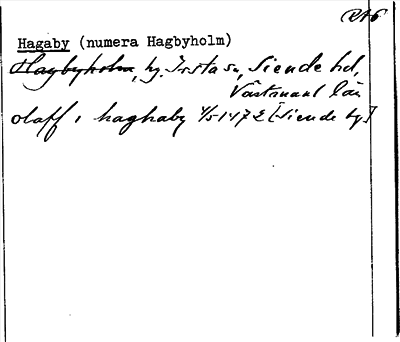 RA6
Hagaby (numera Hagbyholm)
Hagbyholm, hg. Irsta sn, Siende hd,
Västmanl län
olaff i haghaby 4/5 1472 [Siende hg]